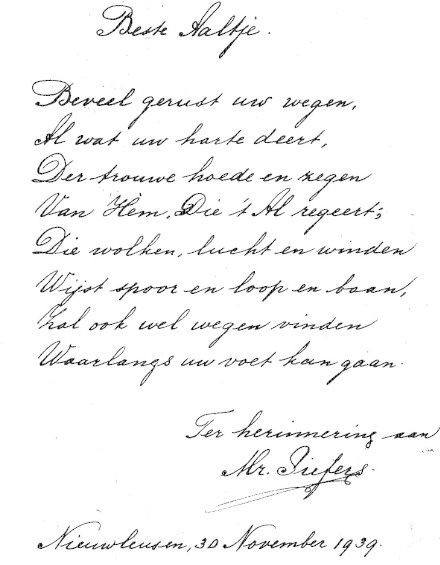 Beste Aaltje.
Beveel gerust uw wegen,
Al wat uw harte deert,
Der trouwe hoede en zegen
Van Hem, Die 't Al regeert;
Die wolken, lucht en winden
Wijst spoor en loop en baan,
Zal ook wel wegen vinden
Waarlangs uw voet kan gaan.
Ter herinnering aan
Mr.
Nieuwleusen, 30 November 1939.